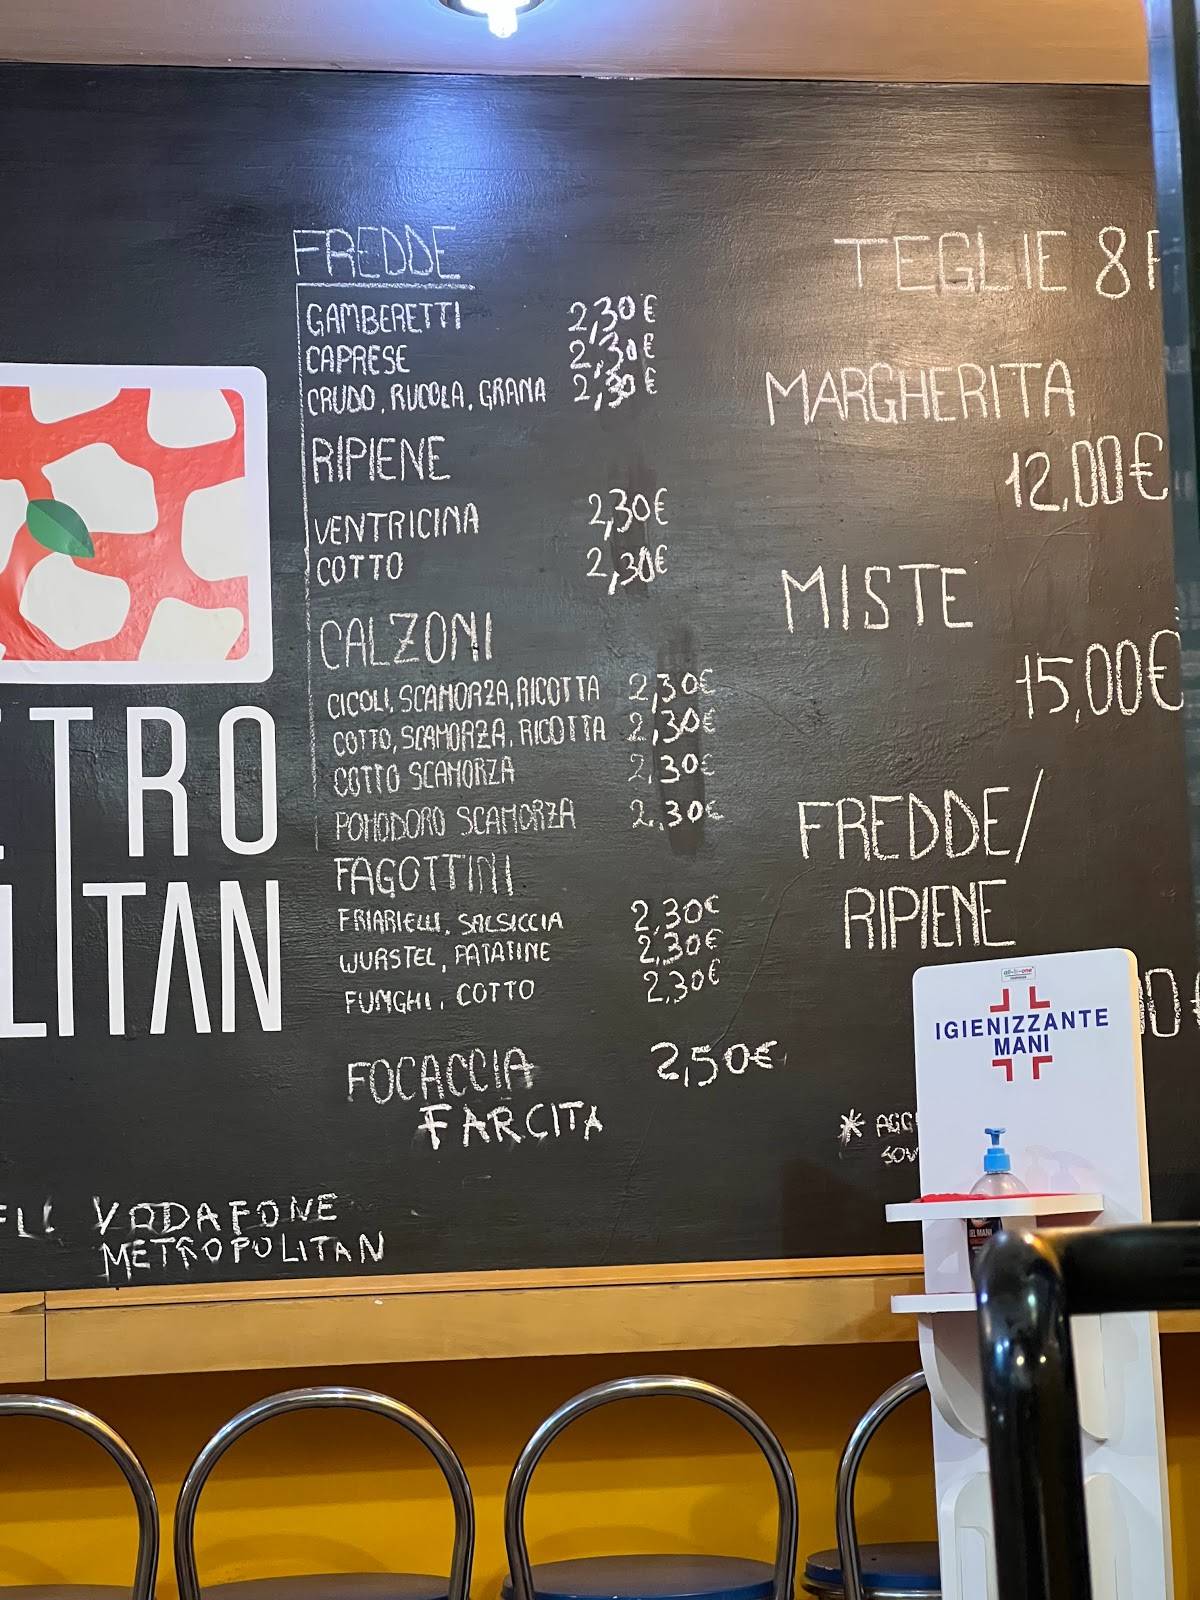 FREDDE
GAMBERETTI 2,30€
CAPRESE 2,30€
CRUDO, RUCOLA, GRANA 2,30€
RIPIENE
VENTRICINA 2,30€
COTTO 2,30€
CALZONI
CICOLI, SCAMORZA, RICOTTA 2,30€
COTTO, SCAMORZA, RICOTTA 2,30€
COTTO SCAMORZA 2,30€
POMODORO SCAMORZA 2,30€
FAGOTTINI
FRIARIELLI, SALSICCIA 2,30€
WURSTEL, PATATINE 2,30€
FUNGHI, COTTO 2,30€
FOCACCIA 2,50€
FARCITA
TEGLIE 8
MARGHERITA
12,00€
MISTE
15,00€
FREDDE/
RIPIENE
* AGG
TRO
LITAN
VODAFONE
METROPOLITAN
all-in-one
IGIENIZZANTE
MANI